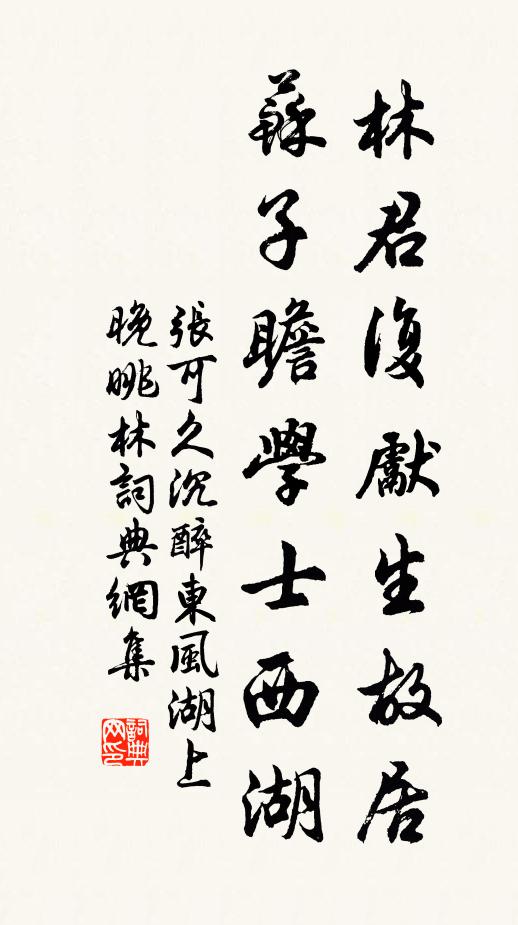 林君復獻生故居
蘇子瞻學士西湖
張可久沉醉東風湖上
晚眺林詞典網集
詞典
網印